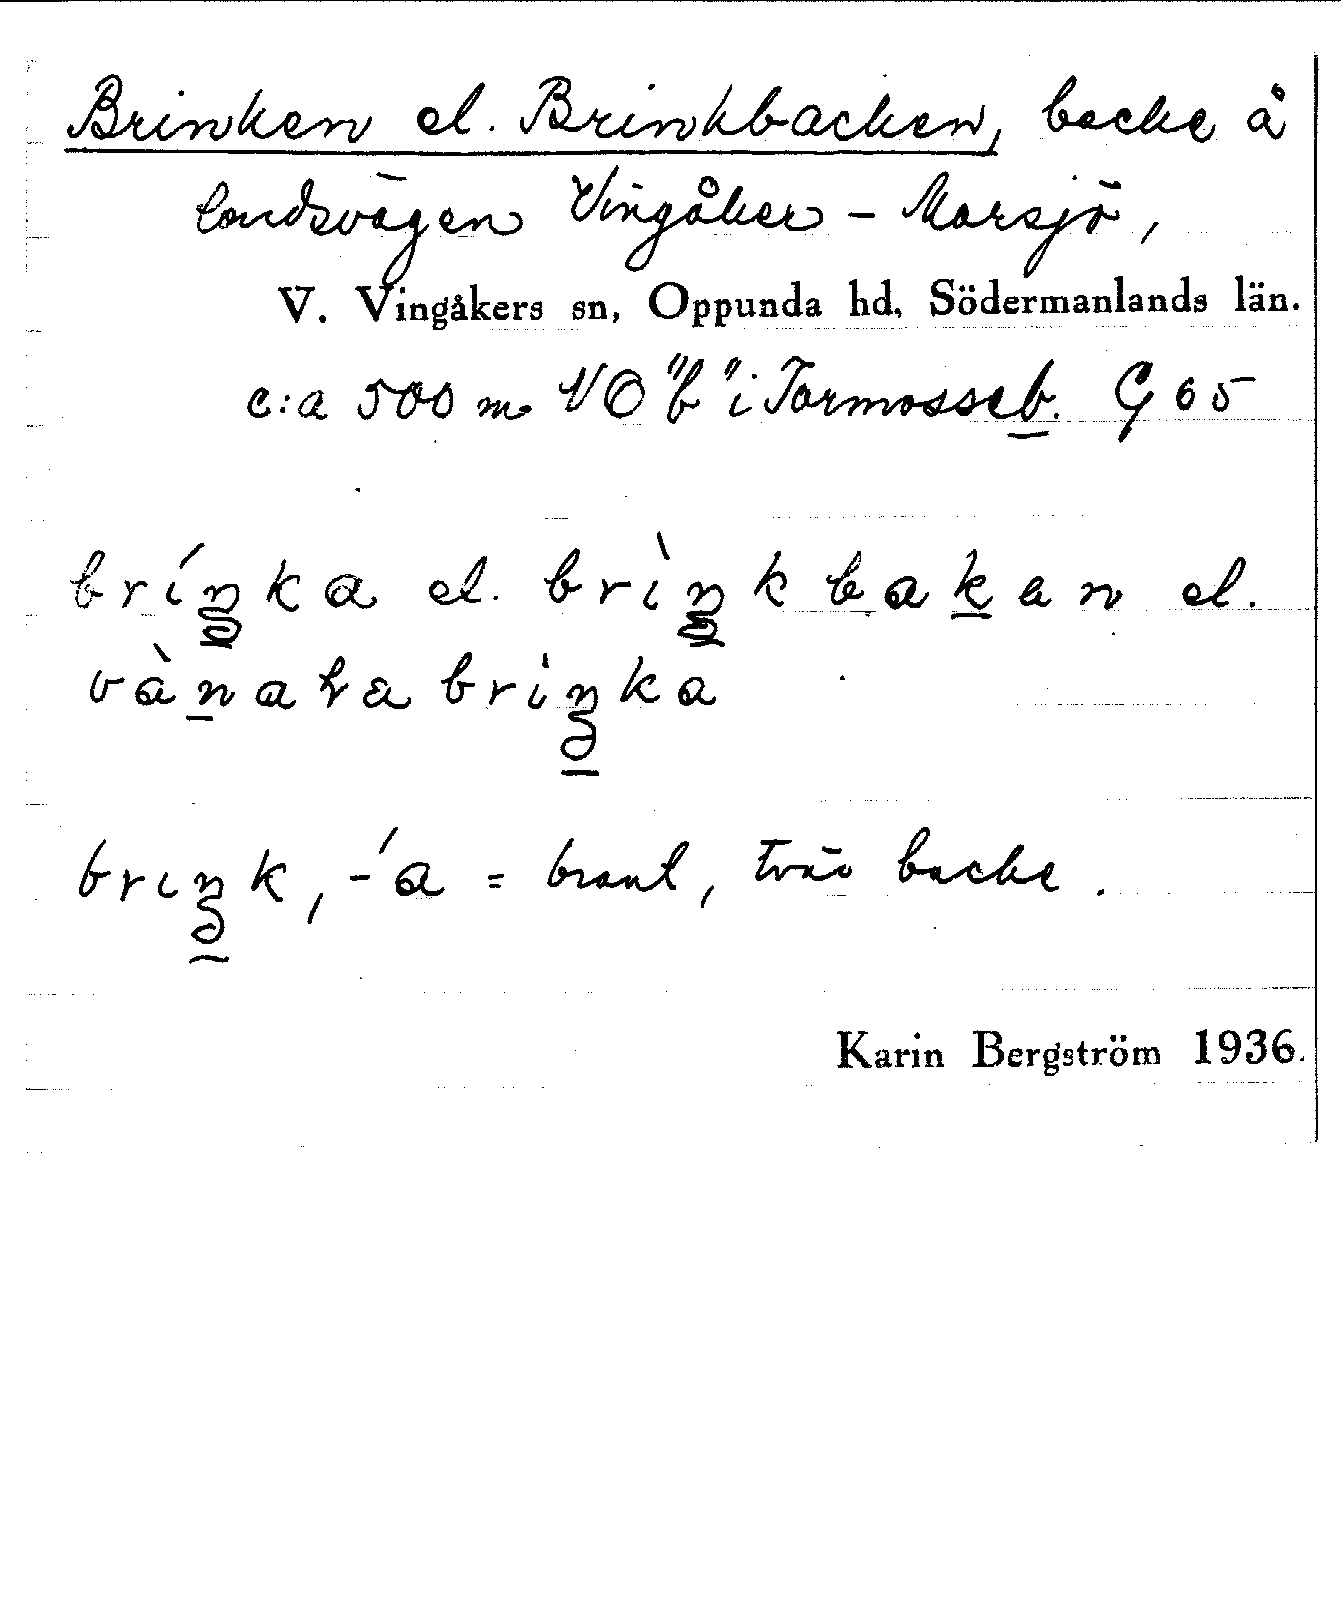 Brinken el. Brinkbacken, backe å
landsvägen Vingåker - Marsjö,
V. Vingåkers sn, Oppunda hd, Södermanlands län.
c:a 500 m. NO "b" i Tormosseb. G 65
bríŋka el. brìŋkbakan el.
vànara briŋka
briŋk, -́a = brant, tvär backe.
Karin Bergström 1936.